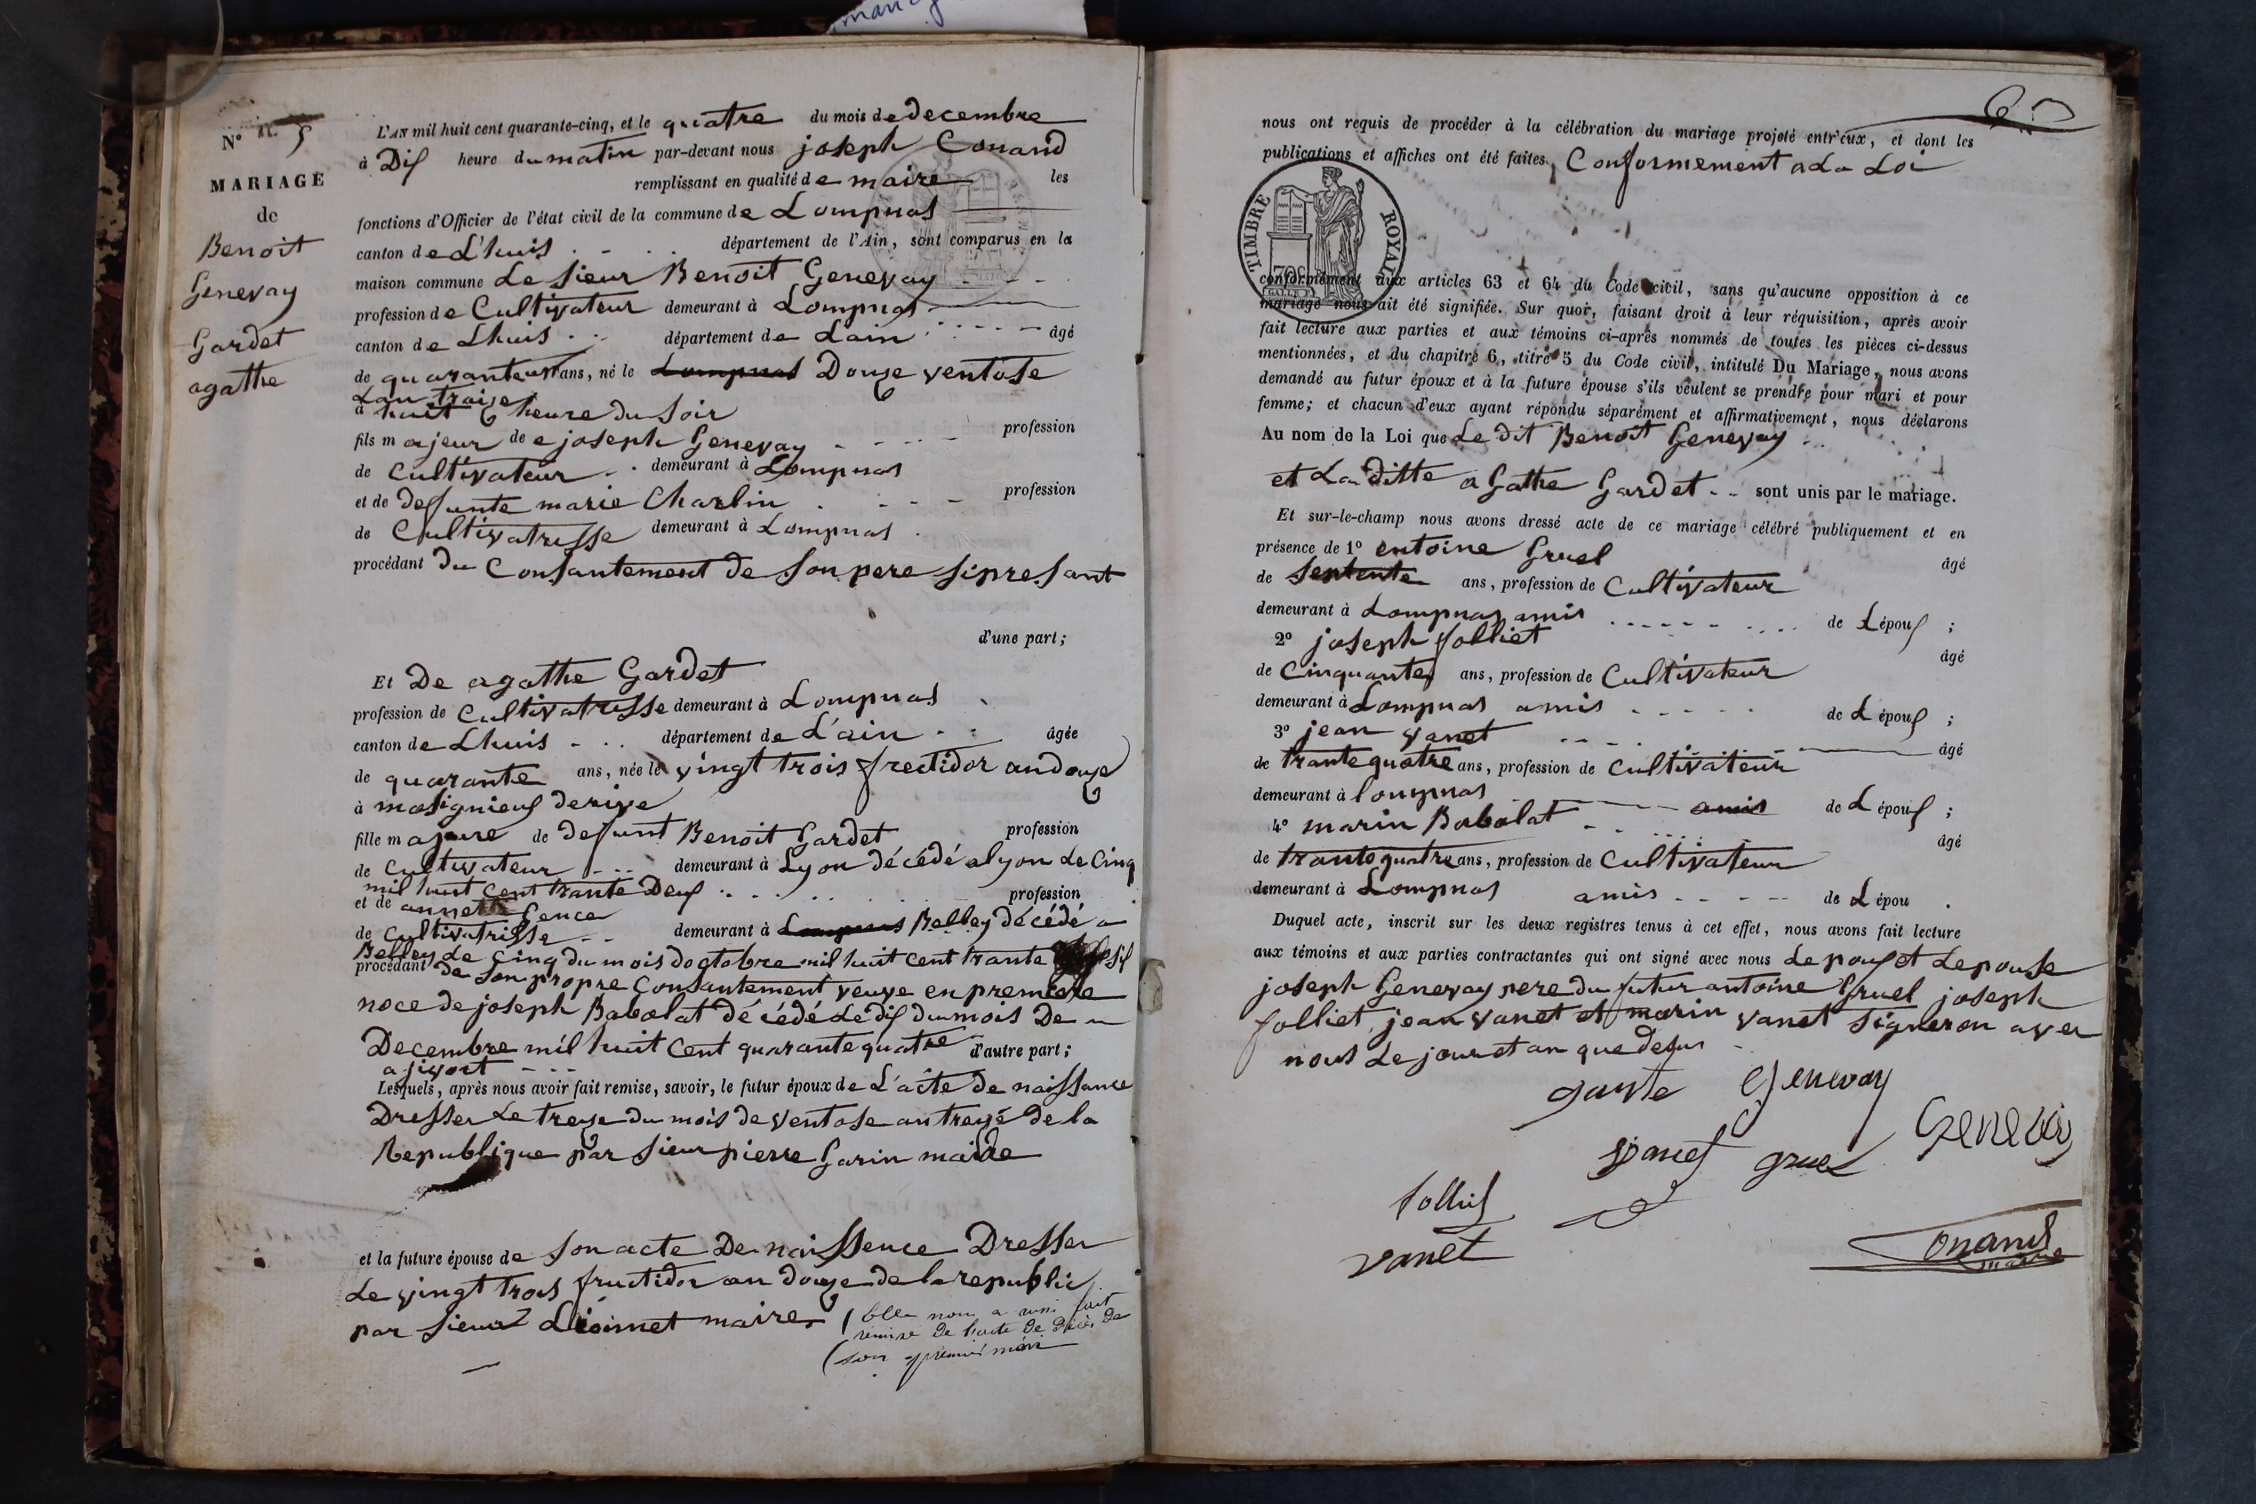 N° 5
MARIAGE
de
Benoit
Genevay
Gardet
agathe
L'AN mil huit cent quarante-cinq, et le quatre du mois de decembre
à Dis heure du matin par-devant nous joseph Conand
remplissant en qualité de maire les
fonctions d'Officier de l'état civil de la commune de Lompnas
canton de L'huis département de l'Ain, sont comparus en la
maison commune Le sieur Benoit Genevay
profession de Cultivateur demeurant à Lompnas
canton de Lhuis département de Lain âgé
de quaranteun ans, né le Lompnas Douze ventose
Lan traize
à huit heure du soir
fils majeur de joseph Genevay profession
de Cultivateur demeurant à Lompnas
et de defunte marie Charlin profession
de Cultivatrisse demeurant à Lompnas
procédant du Consantement de son pere sipresant
d'une part;
Et De agathe Gardet
profession de Cultivatrisse demeurant à Lompnas
canton de Lhuis département de L'ain âgée
de quarante ans, née le vingt trois frectidor an douze
à masignieuf derive
fille majeure de defunt Benoit Gardet profession
de Cultivateur demeurant à Lyon décédé a lyon Le Cinq
mil huit cent trante Deus
et de annette Gence profession
de Cultivatrisse demeurant à Lompnas Belley décédé a
Belley Le Cinq du mois doctobre mil huit cent trante sis
procédant de son propre Consantement veuve en premiere
noce de joseph Babolat décédé Le dis du mois De
Decembre mil huit Cent quarante quatre d'autre part;
a
Lesquels, après nous avoir fait remise, savoir, le futur époux de L'acte De naissance
Dresser Le treze du mois de ventose an treze De la
Republique par sieur pierre Garin maire
et la future épouse de son acte De naissence Dresser
Le vingt trois fructidor an douze de la republic
par sieur maire (Elle nous a aussi fait
remise de l'acte de décès de
(son premier mari
60
nous ont requis de procéder à la célébration du mariage projeté entr'eux, et dont les
publications et affiches ont été faites, Conformement a La Loi
TIMBRE ROYAL
70c
conformément aux articles 63 et 64 du Code civil, sans qu'aucune opposition à ce
mariage nous ait été signifiée. Sur quoi, faisant droit à leur réquisition, après avoir
fait lecture aux parties et aux témoins ci-après nommés de toutes les pièces ci-dessus
mentionnées, et du chapitre 6, titre 5 du Code civil, intitulé Du Mariage, nous avons
demandé au futur époux et à la future épouse s'ils veulent se prendre pour mari et pour
femme; et chacun d'eux ayant répondu séparément et affirmativement, nous déclarons
Au nom de la Loi que Le dit Benoit Genevay
et La ditte aGathe Gardet sont unis par le mariage.
Et sur-le-champ nous avons dressé acte de ce mariage célébré publiquement et en
présence de 1° entoine Gruel âgé
de septente ans, profession de Cultivateur
demeurant à Lompnas amis de L'épous ;
2° joseph folliet âgé
de Cinquante ans, profession de Cultivateur
demeurant à Lompnas amis de L'épous ;
3° jean vanet âgé
de trantequatre ans, profession de Cultivateur
demeurant à lompnas amis de L'épous ;
4° marin Babolat âgé
de trantequatre ans, profession de Cultivateur
demeurant à Lompnas amis de L'épou .
Duquel acte, inscrit sur les deux registres tenus à cet effet, nous avons fait lecture
aux témoins et aux parties contractantes qui ont signé avec nous Lepous et Lepouse
joseph Genevay pere du futur antoine Gruel joseph
folliet, jean vanet et marin vanet signeron aver
nous Le jour et an que desus
Genevay
Genevay
vanet gruel
folliet
vanet
Conand
maire